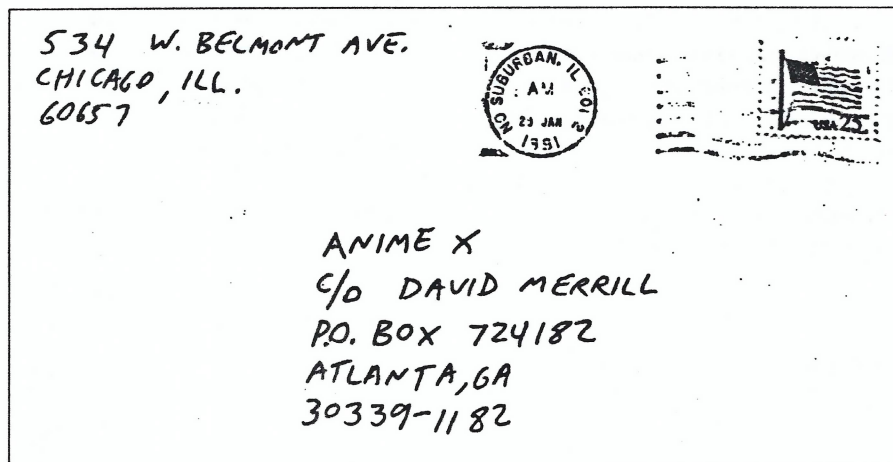 534 W. BELMONT AVE.
CHICAGO, ILL.
60657
NO SUBURBAN, IL 601
AM
29 JAN
1991
USA 25
ANIME X
C/O DAVID MERRILL
P.O. BOX 724182
ATLANTA, GA
30339-1182